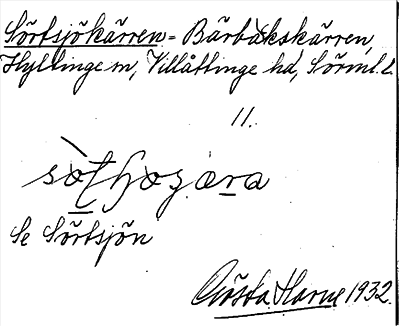 Sörtsjökärren = Bärbäkskärren,
Hyltinge sn, Villåttinge hd, Sörml. l.
11.
Se Sörtsjön
Gösta Harne 1932.